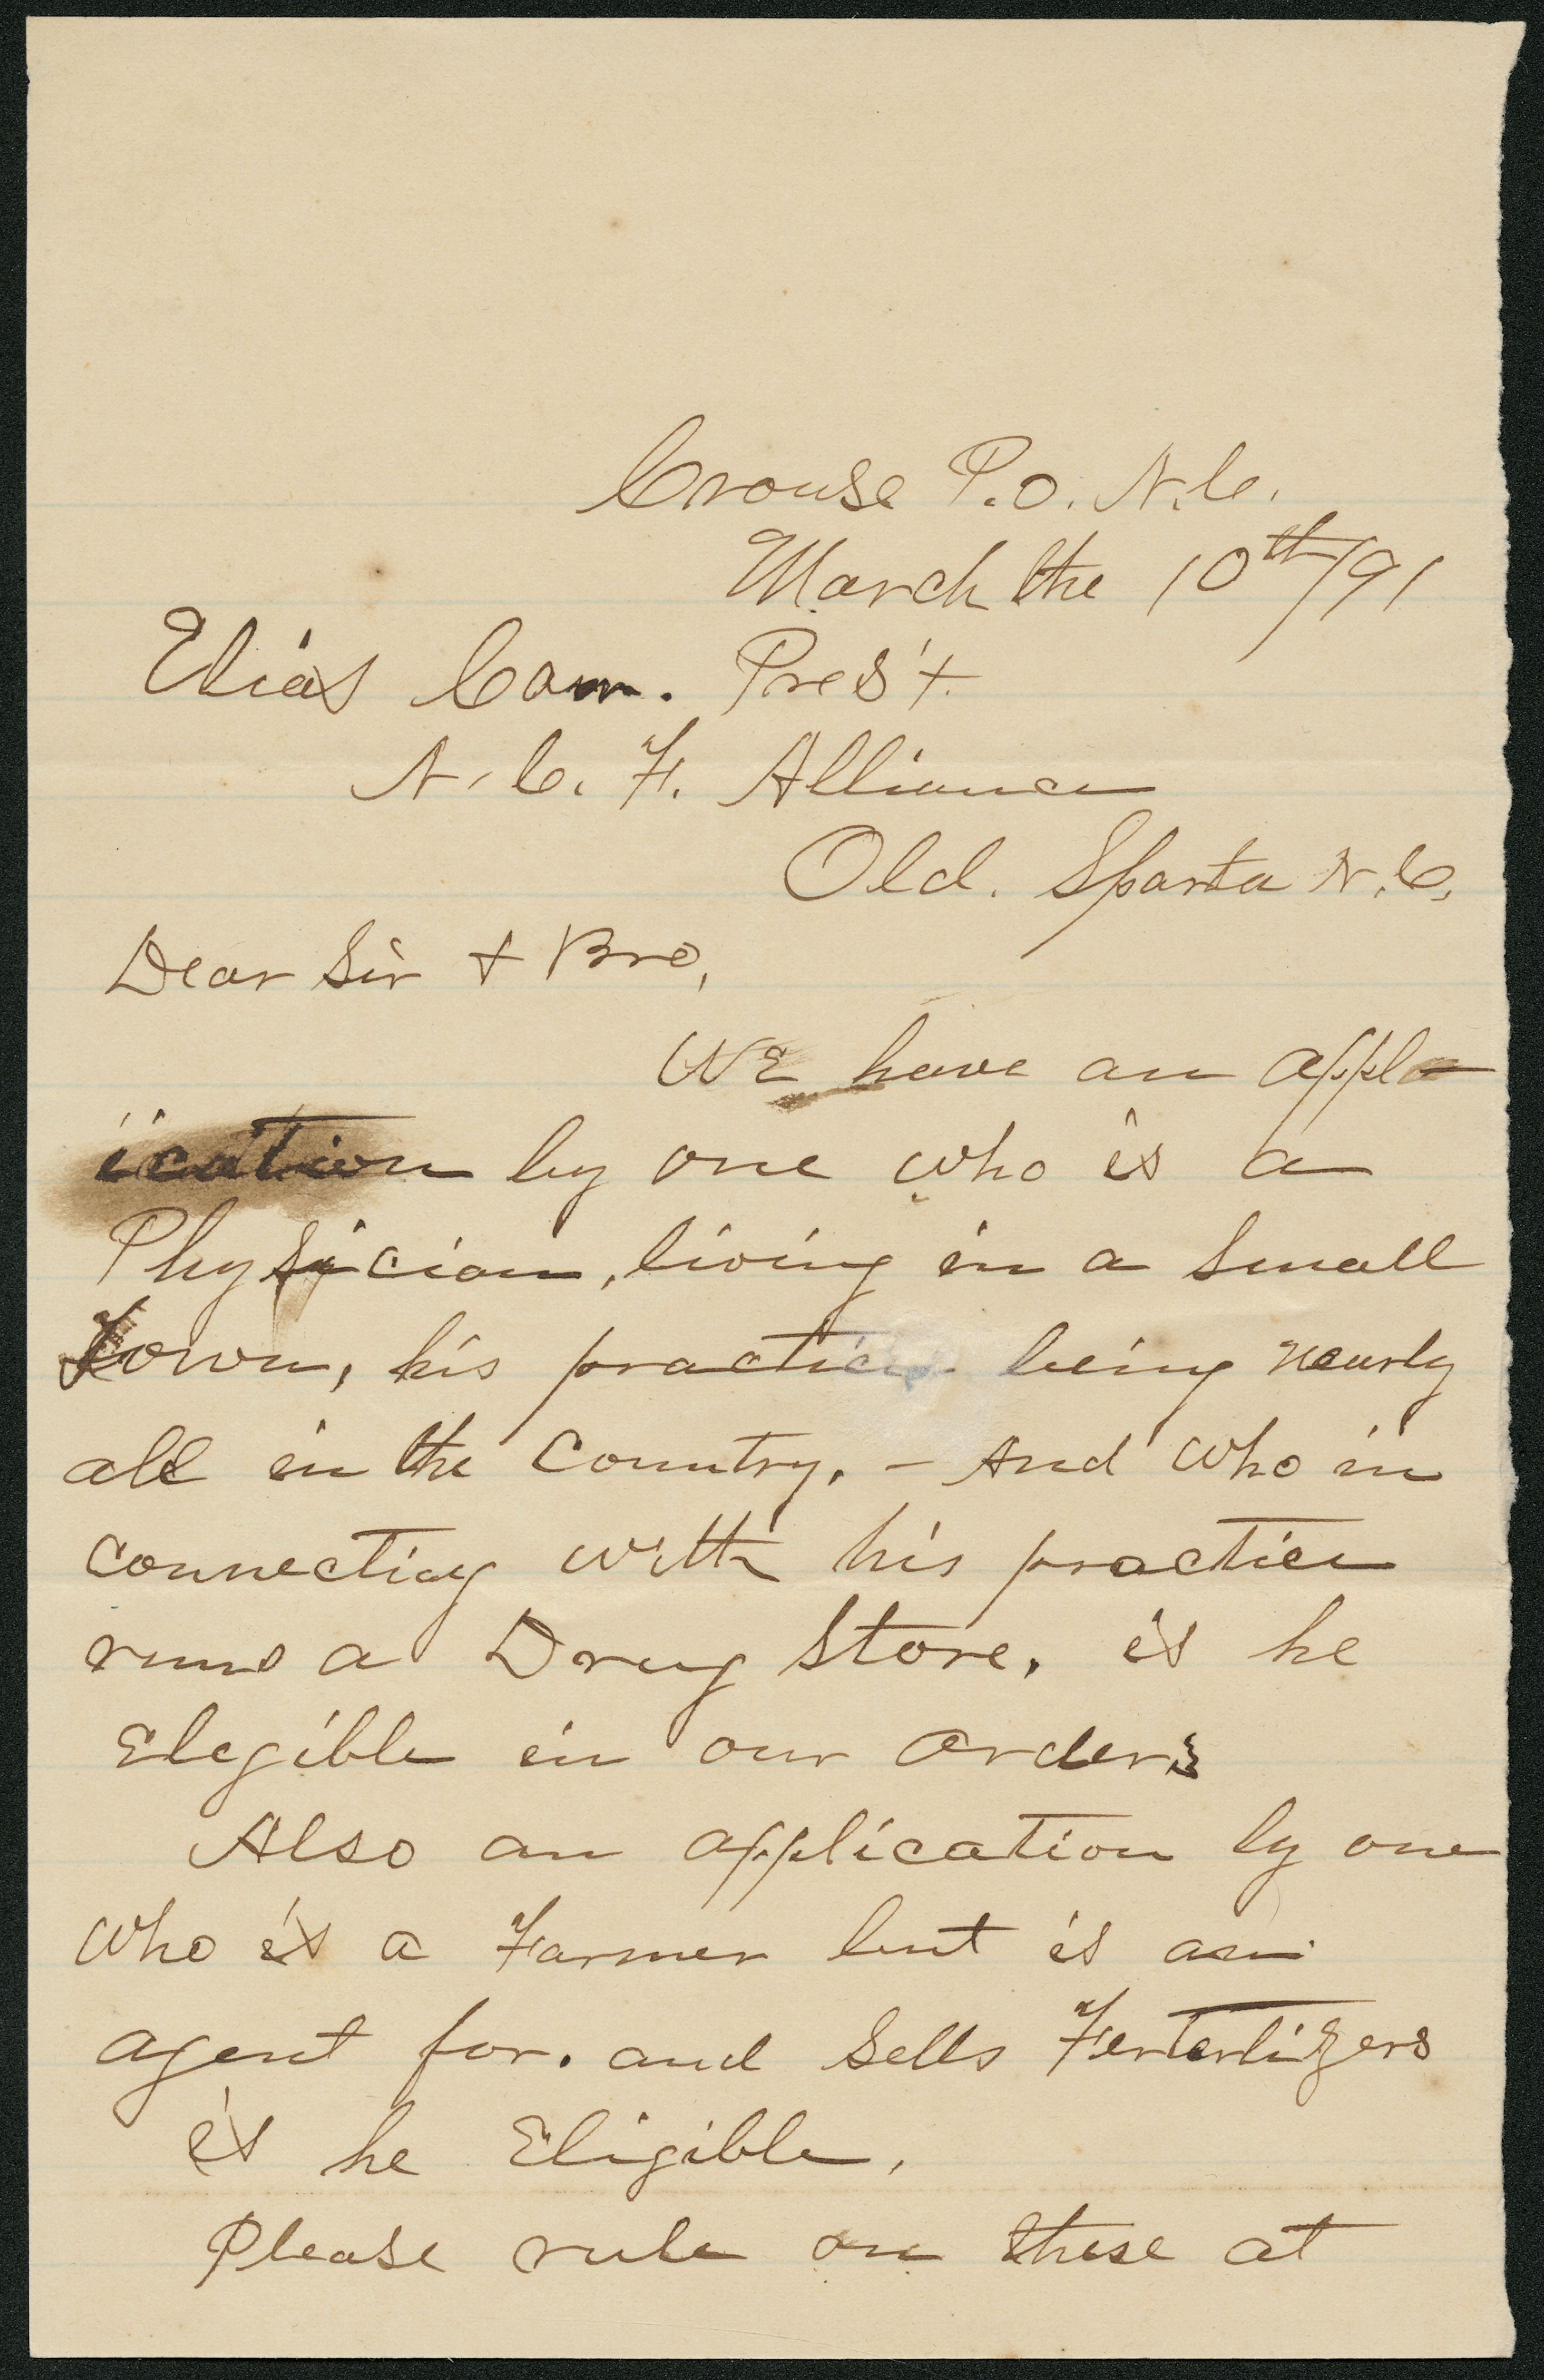 Crouse P.O. N.C.
March the 10th/91
Elias Carr. Pres't.
N. C. F. Alliance
Old. Sparta N.C.
Dear Sir + Bro,
WE have an appl-
ication by one who is a
Physician, living in a Small
Town, his practice being nearly
all in the Country. - And who in
connecting with his practice
runs a Drug Store. is he
Elegible in our order?
Also an application by one
who is a Farmer but is an
agent for. and Sells Ferterlizers
is he Eligible.
Please rule on these at